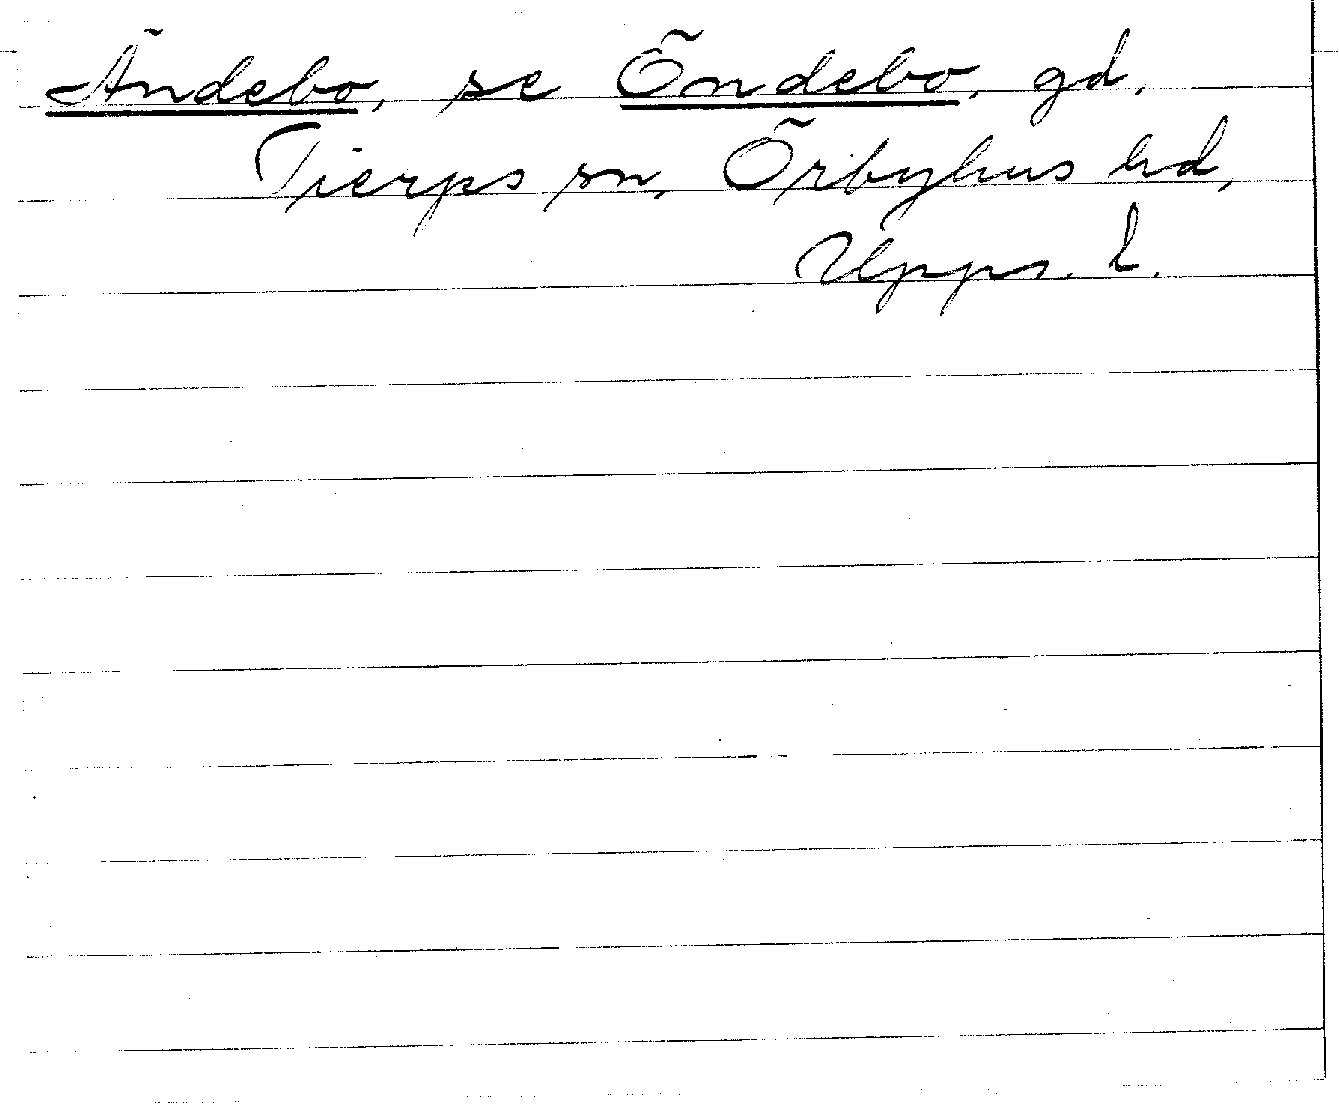 Ändebo, se Öndebo, gd,
Tierps sn, Örbyhus hd,
Upps. l.